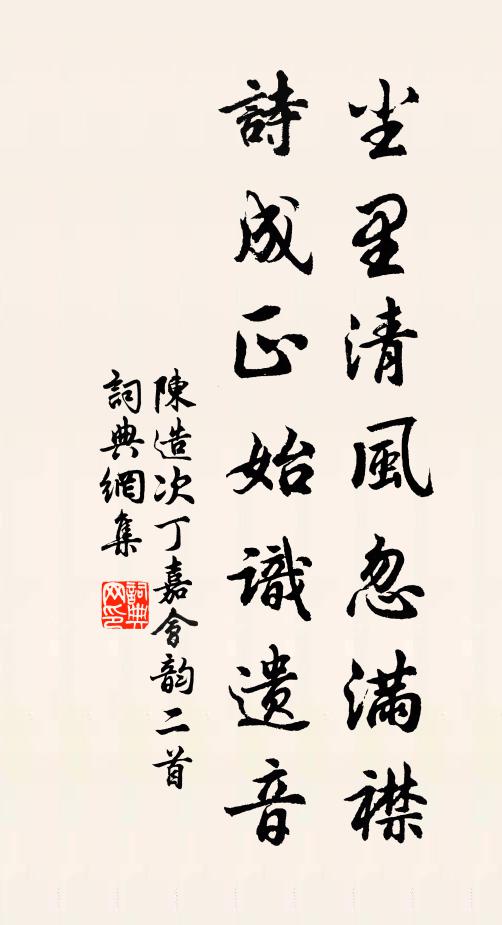 坐里清風忽滿襟
詩成正始識遺音
陳造次丁嘉會韵二首
詞典網集
詞典
网印